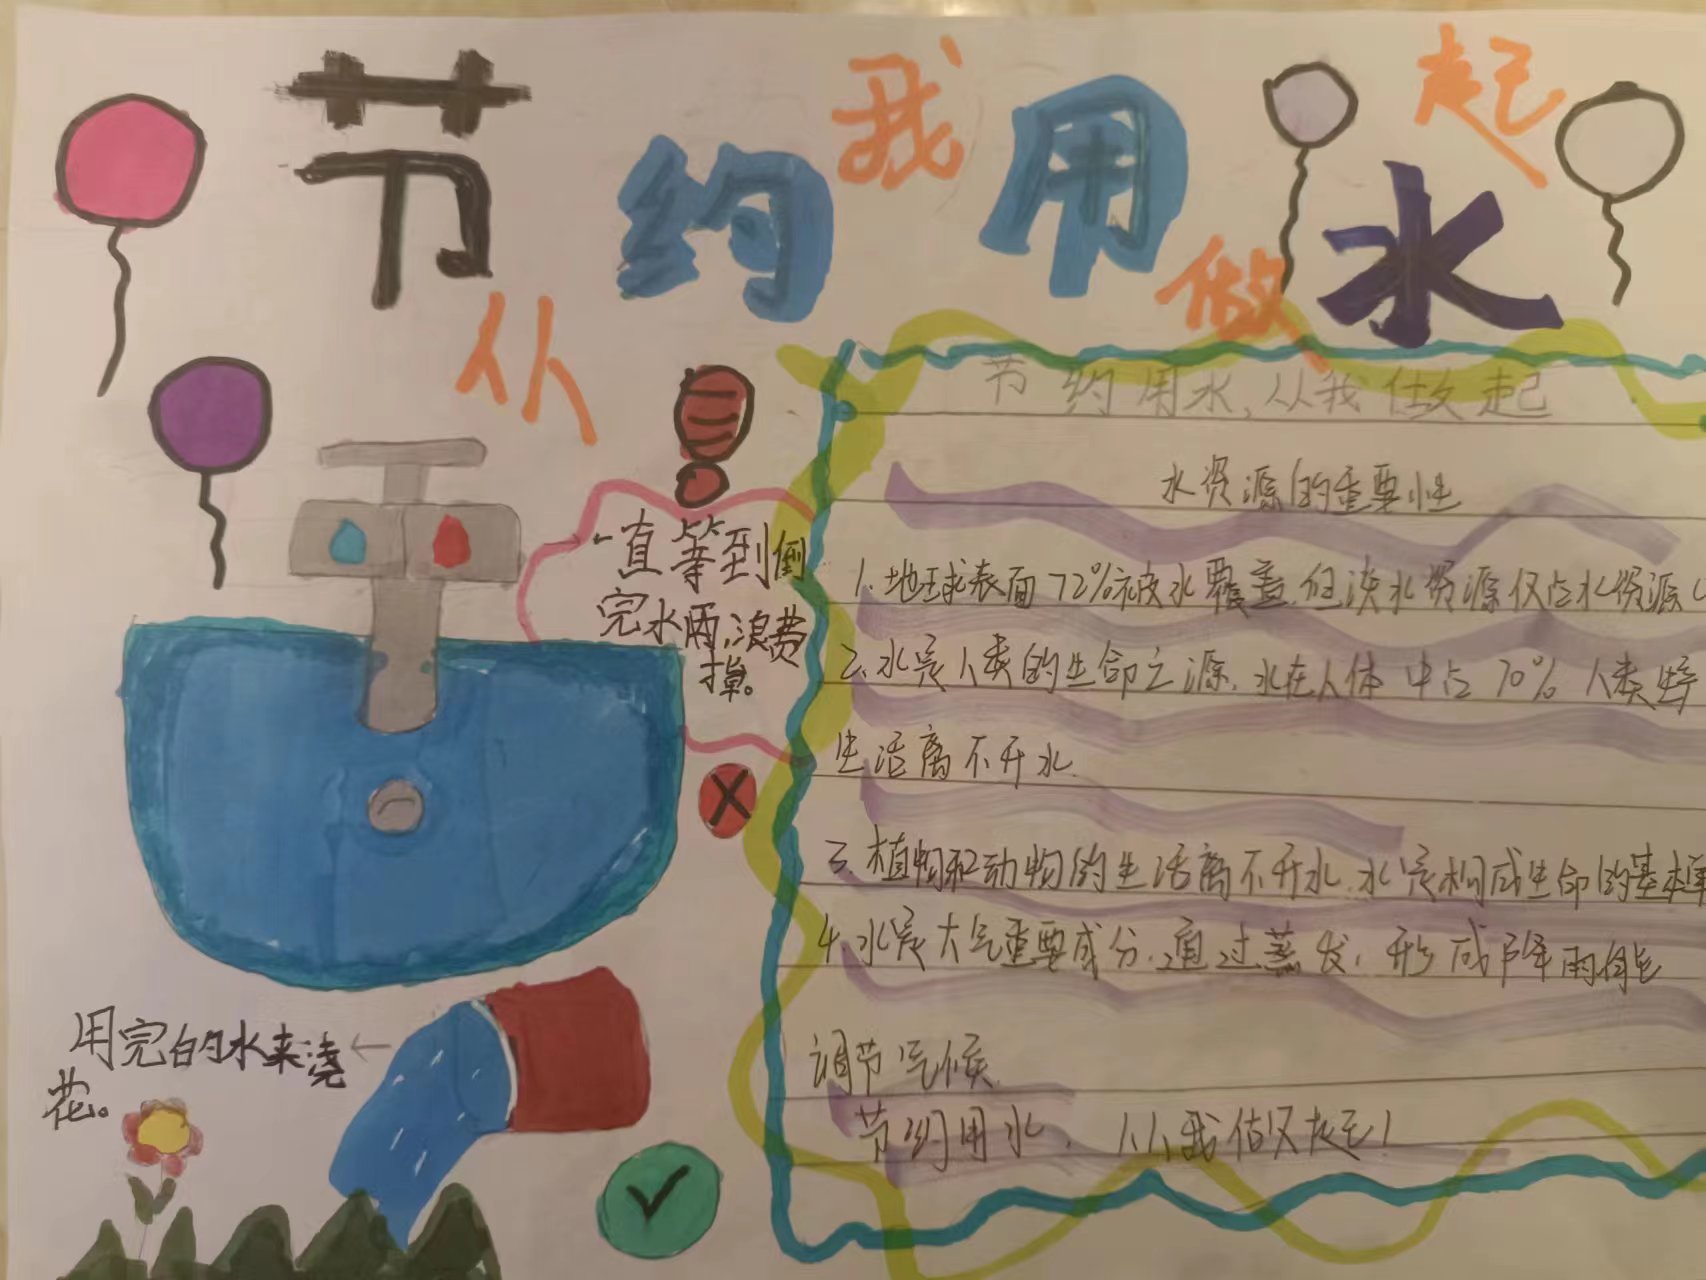 节约用水
从我做起
节约用水,从我做起
水资源的重要性
1.地球表面72%被水覆盖.但淡水资源仅占水资源
2.水是人类的生命之源.水在人体中占70%人类
生活离不开水.
3.植物和动物的生活离不开水.水是构成生命的基本
4.水是大气重要成分.通过蒸发,形成降雨能
调节气候.
节约用水,从我做起!
一直等到倒
完水两,浪费
掉。
用完的水来浇
花。